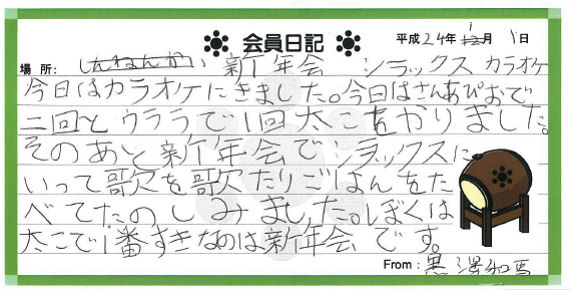 会員日記
平成24年1月1日
場所: 新年会 シラックス カラオケ
今日はカラオケにきました。今日はさんあぴおで
二回とウララで1回太こをかりました。
そのあと新年会でシラックスに
いって歌を歌たりごはんをた
べてたのしみました。ぼくは
太こで1番すきなのは新年会です。
From: 黒澤和馬